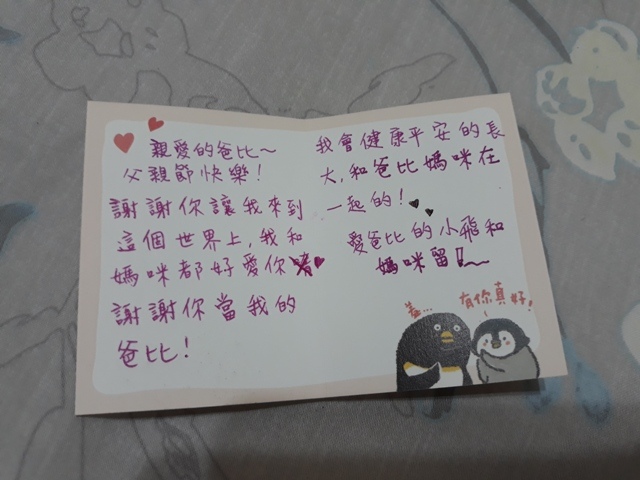 親愛的爸比~
父親節快樂!
謝謝你讓我來到
這個世界上,我和
媽咪都好愛你
謝謝你當我的
爸比!
我會健康平安的長
大,和爸比媽咪在
一起的!
愛爸比的小飛和
媽咪留!~
羞...
有你真好!